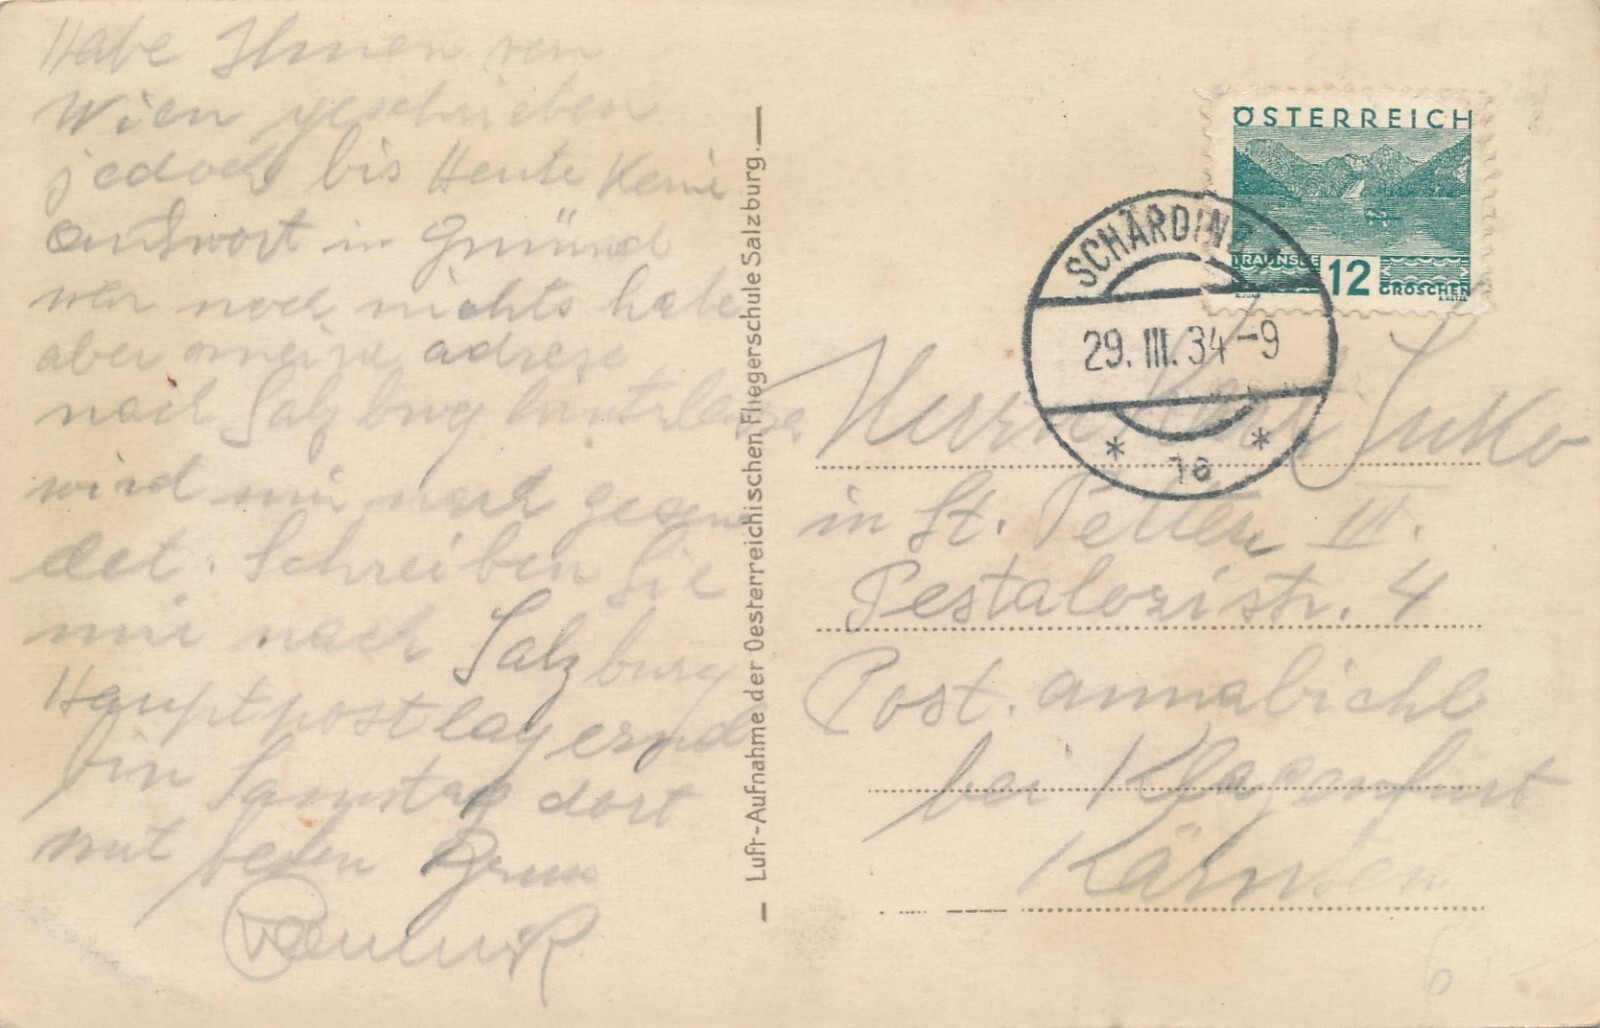 Habe Ihnen von
Wien geschrieben
jedoch bis Heute Keine
antwort in Gmünd
war noch nichts habe
aber meine adrese
nach Salzburg
wird mir nach gesen
det. Schreiben Sie
mir nach Salzburg
Hauptpostlagernd
bin Samstag dort
mit besten Gruss
Luft-Aufnahme der Oesterreichischen Fliegerschule Salzburg.
ÖSTERREICH
TRAUNSEE
12
GROSCHEN
SCHÄRDING
29. III. 34-9
* 1a *
Herrn Karl
in St. Petter III.
Pestalozistr. 4
Post. annabichl
bei Klagenfurt
Kärnten